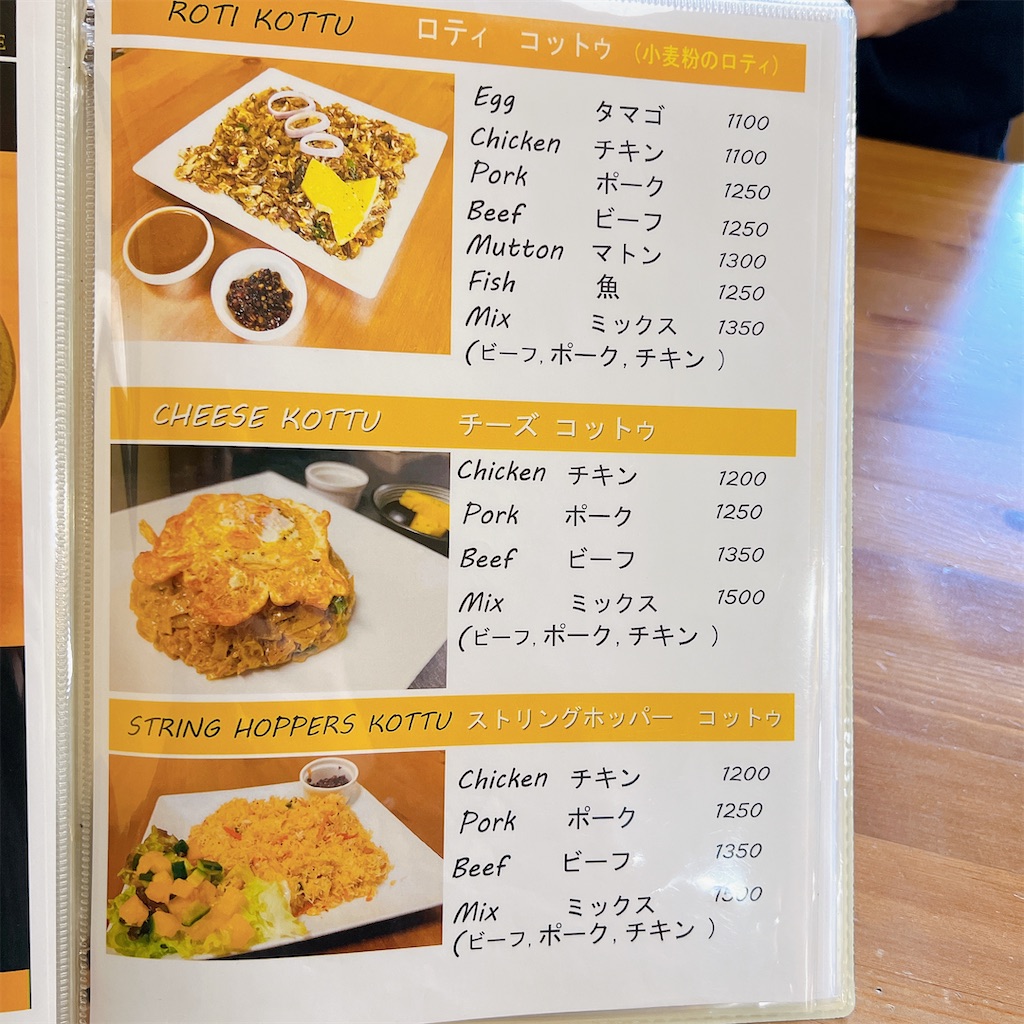 ROTI KOTTU ロティ コットゥ (小麦粉のロティ)
Egg タマゴ 1100
Chicken チキン 1100
Pork ポーク 1250
Beef ビーフ 1250
Mutton マトン 1300
Fish 魚 1250
Mix ミックス 1350
(ビーフ, ポーク, チキン )
CHEESE KOTTU チーズ コットゥ
Chicken チキン 1200
Pork ポーク 1250
Beef ビーフ 1350
Mix ミックス 1500
(ビーフ, ポーク, チキン )
STRING HOPPERS KOTTU ストリングホッパー コットゥ
Chicken チキン 1200
Pork ポーク 1250
Beef ビーフ 1350
Mix ミックス 1500
(ビーフ, ポーク, チキン )